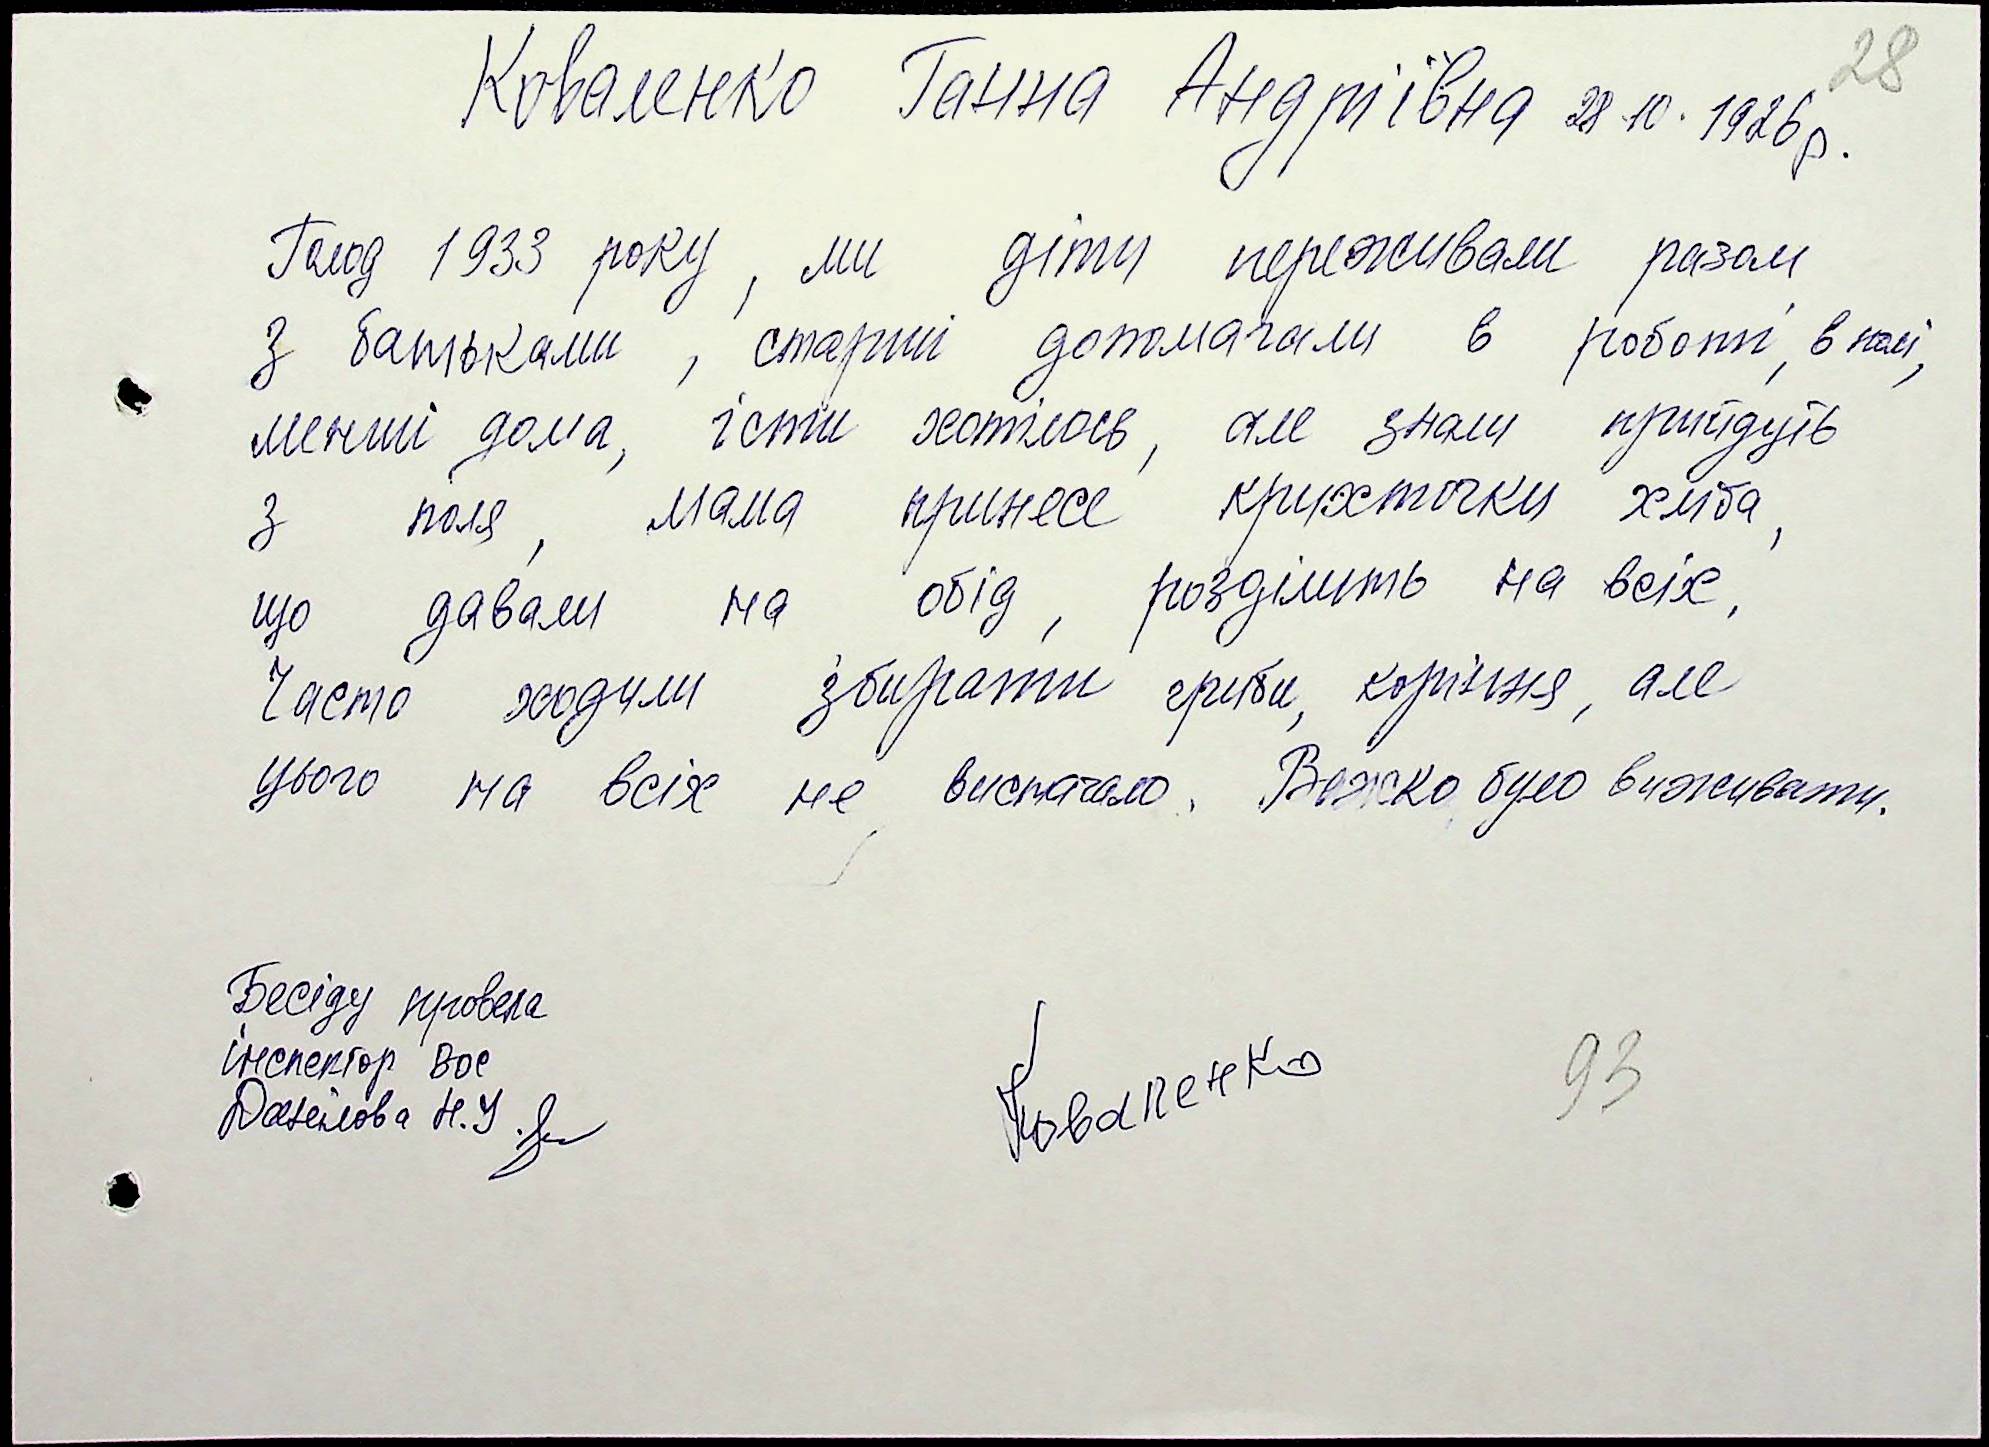 28
Коваленко Ганна Андріївна 28.10.1926р.
Голод 1933 року, ми діти переживали разом
з батьками, старші допомагали в роботі, в полі,
менші дома, їсти хотілось, але знали прийдуть
з поля, мама принесе крихточки хліба,
що давали на обід, розділить на всіх.
Часто ходили збирати гриби, коріння, але
цього на всіх не вистачало. Важко було виживати.
Бесіду провела
інспектор ВОС
Данілова Н.У.
Коваленко
93